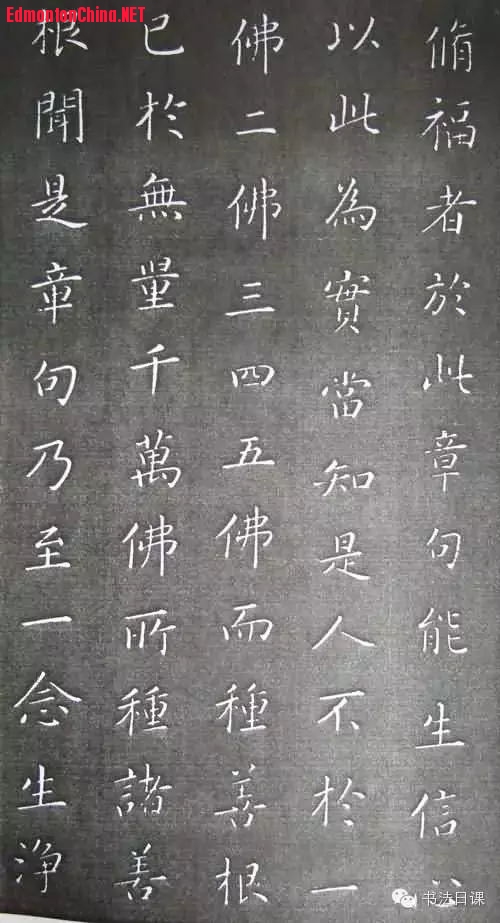 脩福者於此章句能生信心
以此為實當知是人不於一
佛二佛三四五佛而種善根
已於無量千萬佛所種諸善
根聞是章句乃至一念生浄
EdmontonChina.NET
书法日课